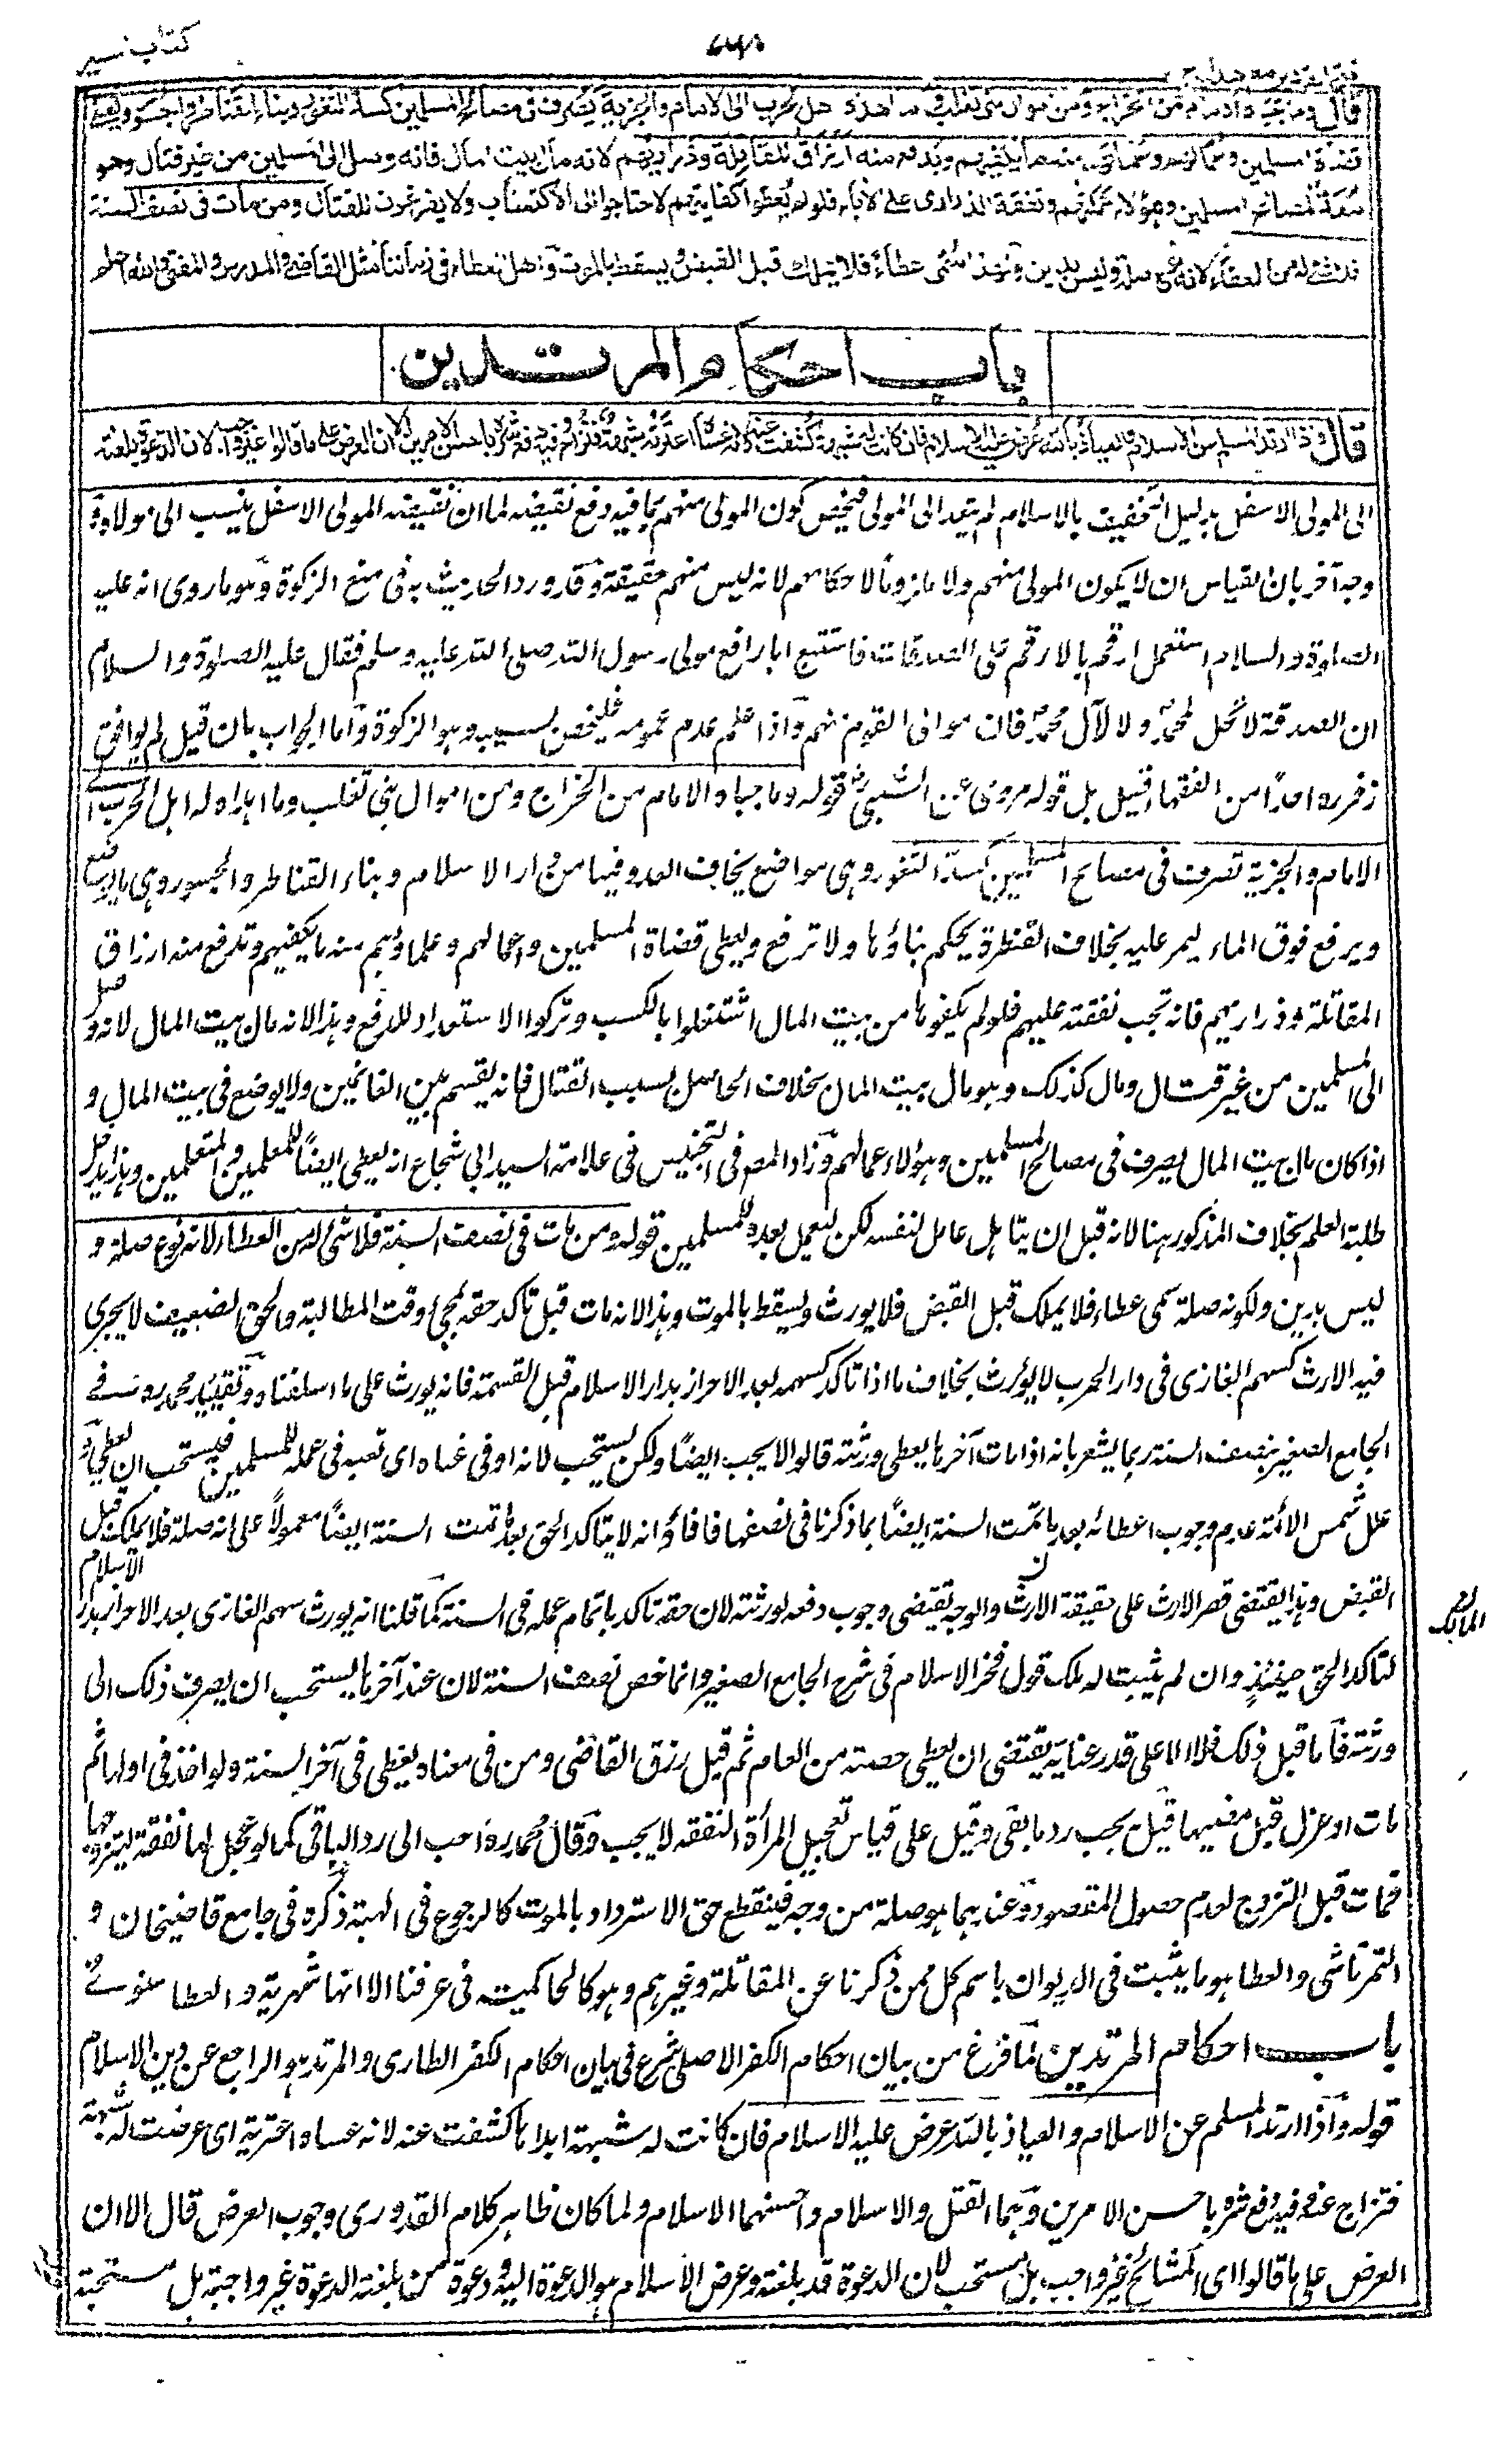 كتاب السير
فتح القدير مع هداية ج
قال وما جباه الامام من الخراج ومن اموال بنى تغلب وما اهداه اهل الحرب الى الامام والجزية يصرف فى مصالح المسلمين كسد الثغور وبناء القناطر والجسور ويعطى
قضاة المسلمين وعمالهم وعلماؤهم منه ما يكفيهم ويدفع منه ارزاق المقاتلة وذراريهم لانه مال بيت المال فانه وصل الى المسلمين من غير قتال وهو
معد لمصالح المسلمين وهؤلاء عملتهم ونفقة الذرارى على الآباء فلو لم يعطوا كفايتهم لاحتاجوا الى الاكتساب ولا يتفرغون للقتال ومن مات فى نصف السنة
فلا شئ له من العطاء لانه نوع صلة وليس بدين ولهذا سمى عطاء فلا يملك قبل القبض ويسقط بالموت واهل العطاء فى زماننا مثل القاضى والمدرس والمفتى والله اعلم
باب احكام المرتدين
قال واذا ارتد المسلم عن الاسلام والعياذ بالله عرض عليه الاسلام فان كانت له شبهة كشفت عنه لانه عساه اعترته شبهة فتزاح وفيه دفع شره باحسن الامرين الا ان العرض على ما قالوا غير واجب لان الدعوة بلغته
الى المولى الاسفل بدليل التخفيف بالاسلام لم يتعد الى المولى فيخص كون المولى منهم بما فيه دفع نقيصه لما ان نقيصة المولى الاسفل ينسب الى مولاه و
وجه آخر بان القياس ان لا يكون المولى منهم ولا ملزوما لاحكامهم لانه ليس منهم حقيقة وقد ورد الحديث به فى منع الزكوة وهو ما روى انه عليه
الصلوة والسلام استعمل ارقم بالارقم على الصدقات فاستتبع ابا رافع مولى رسول الله صلى الله عليه وسلم فقال عليه الصلوة والسلام
ان الصدقة لا تحل لمحمد ولا لآل محمد فان موالى القوم منهم واذا علم عدم عمومه فليخص لسببه وهو الزكوة واما الجواب بان قيل لم يوافق
زفر ره احدا من الفقهاء قيل بل قوله مروى عن الشعبى قوله وما جباه الامام من الخراج ومن اموال بنى تغلب وما اهداه له اهل الحرب الى
الامام والجزية تصرف فى مصالح المسلمين كسد الثغور وهى مواضع يخاف العدو فيها من دار الاسلام وبناء القناطر والجسور وهى ما يوضع
ويرفع فوق الماء ليمر عليه بخلاف القنطرة يحكم بناؤها ولا ترفع ويعطى قضاة المسلمين واعمالهم وعلماؤهم منه ما يكفيهم وتدفع منه ارزاق
المقاتلة وذراريهم فانه تجب نفقته عليهم فلو لم يكفوها من بيت المال اشتغلوا بالكسب وتركوا الاستعداد للدفع وهذا لانه مال بيت المال لانه وصل
الى المسلمين من غير قتال ومال كذلك وهو مال بيت المال بخلاف الحاصل بسبب القتال فانه يقسم بين الغانمين ولا يوضع فى بيت المال و
اذا كان مال بيت المال يصرف فى مصالح المسلمين وهؤلاء عمالهم وزاد المص فى التجنيس فى علامة السيد ابى شجاع انه يعطى ايضا للمعلمين والمتعلمين وبهذا يدخل
طلبة العلم بخلاف المذكور هنا لانه قبل ان يتاهل عامل لنفسه لكن ليعمل بعده للمسلمين قوله ومن مات فى نصف السنة فلا شئ له من العطاء لانه نوع صلة و
ليس بدين ولكونه صلة سمى عطاء فلا يملك قبل القبض فلا يورث ويسقط بالموت وهذا لانه مات قبل تاكد حقه بمجئ وقت المطالبة والحق الضعيف لا يجرى
فيه الارث كسهم الغازى فى دار الحرب لا يورث بخلاف ما اذا تاكد كسهمه بعد الاحراز بدار الاسلام قبل القسمة فانه يورث على ما اسلفناه وتقييد محمد ره فى
الجامع الصغير بنصف السنة ربما يشعر بانه اذا مات آخرها يعطى ورثته قالوا لا يجب ايضا ولكن يستحب لانه اوفى عناه اى تعبه فى عمله للمسلمين فيستحب ان يعطى و
علل شمس الائمة عدم وجوب اعطائه بعد ما تمت السنة ايضا بما ذكرنا فى نصفها فافاد انه لا يتاكد الحق بعد ما تمت السنة ايضا معمولا على انه صلة فلا يملك قبل
القبض وهذا يقتضى قصر الارث على حقيقة الارث والوجه يقتضى وجوب دفعه لورثته لان حقه تاكد باتمام عمله فى السنة كما قلنا انه يورث سهم الغازى بعد الاحراز بدار الاسلام
لتاكد الحق حينئذ وان لم يثبت له ملك قول فخر الاسلام فى شرح الجامع الصغير وانما خص نصف السنة لان عند آخرها يستحب ان يصرف ذلك الى
ورثته فاما قبل ذلك فلا الا على قدر عنايه يقتضى ان يعطى حصته من العام ثم قيل رزق القاضى ومن فى معناه يعطى فى آخر السنة ولو اخذ فى اولها ثم
مات او عزل قبل مضيها قيل يجب رد ما بقى وقيل على قياس تعجيل المرأة النفقة لا يجب وقال محمد ره احب الى رد الباقى كما لو عجل لها نفقة ليتزوجها
فمات قبل التزوج لعدم حصول المقصود وعندهما هو صلة من وجه فينقطع حق الاسترداد بالموت كالرجوع فى الهبة ذكره فى جامع قاضيخان و
التمرتاشى والعطا هو ما يثبت فى الديوان باسم كل ممن ذكرنا عن المقاتلة وغيرهم وهو كالجامكية فى عرفنا الا انها شهرية والعطا سنوى
باب احكام المرتدين لما فرغ من بيان احكام الكفر الاصلى شرع فى بيان احكام الكفر الطارى والمرتد هو الراجع عن دين الاسلام
قوله واذا ارتد المسلم عن الاسلام والعياذ بالله عرض عليه الاسلام فان كانت له شبهة ابداها كشفت عنه لانه عساه اعترته اى عرضت له شبهة
فتزاح عنه وفيه دفع شره باحسن الامرين وهما القتل والاسلام واحسنهما الاسلام ولما كان ظاهر كلام القدورى وجوب العرض قال الا ان
العرض على ما قالوا اى المشائخ غير واجب بل مستحب لان الدعوة قد بلغته وعرض الاسلام هو الدعوة اليه ودعوة من بلغته الدعوة غير واجبة بل مستحبة